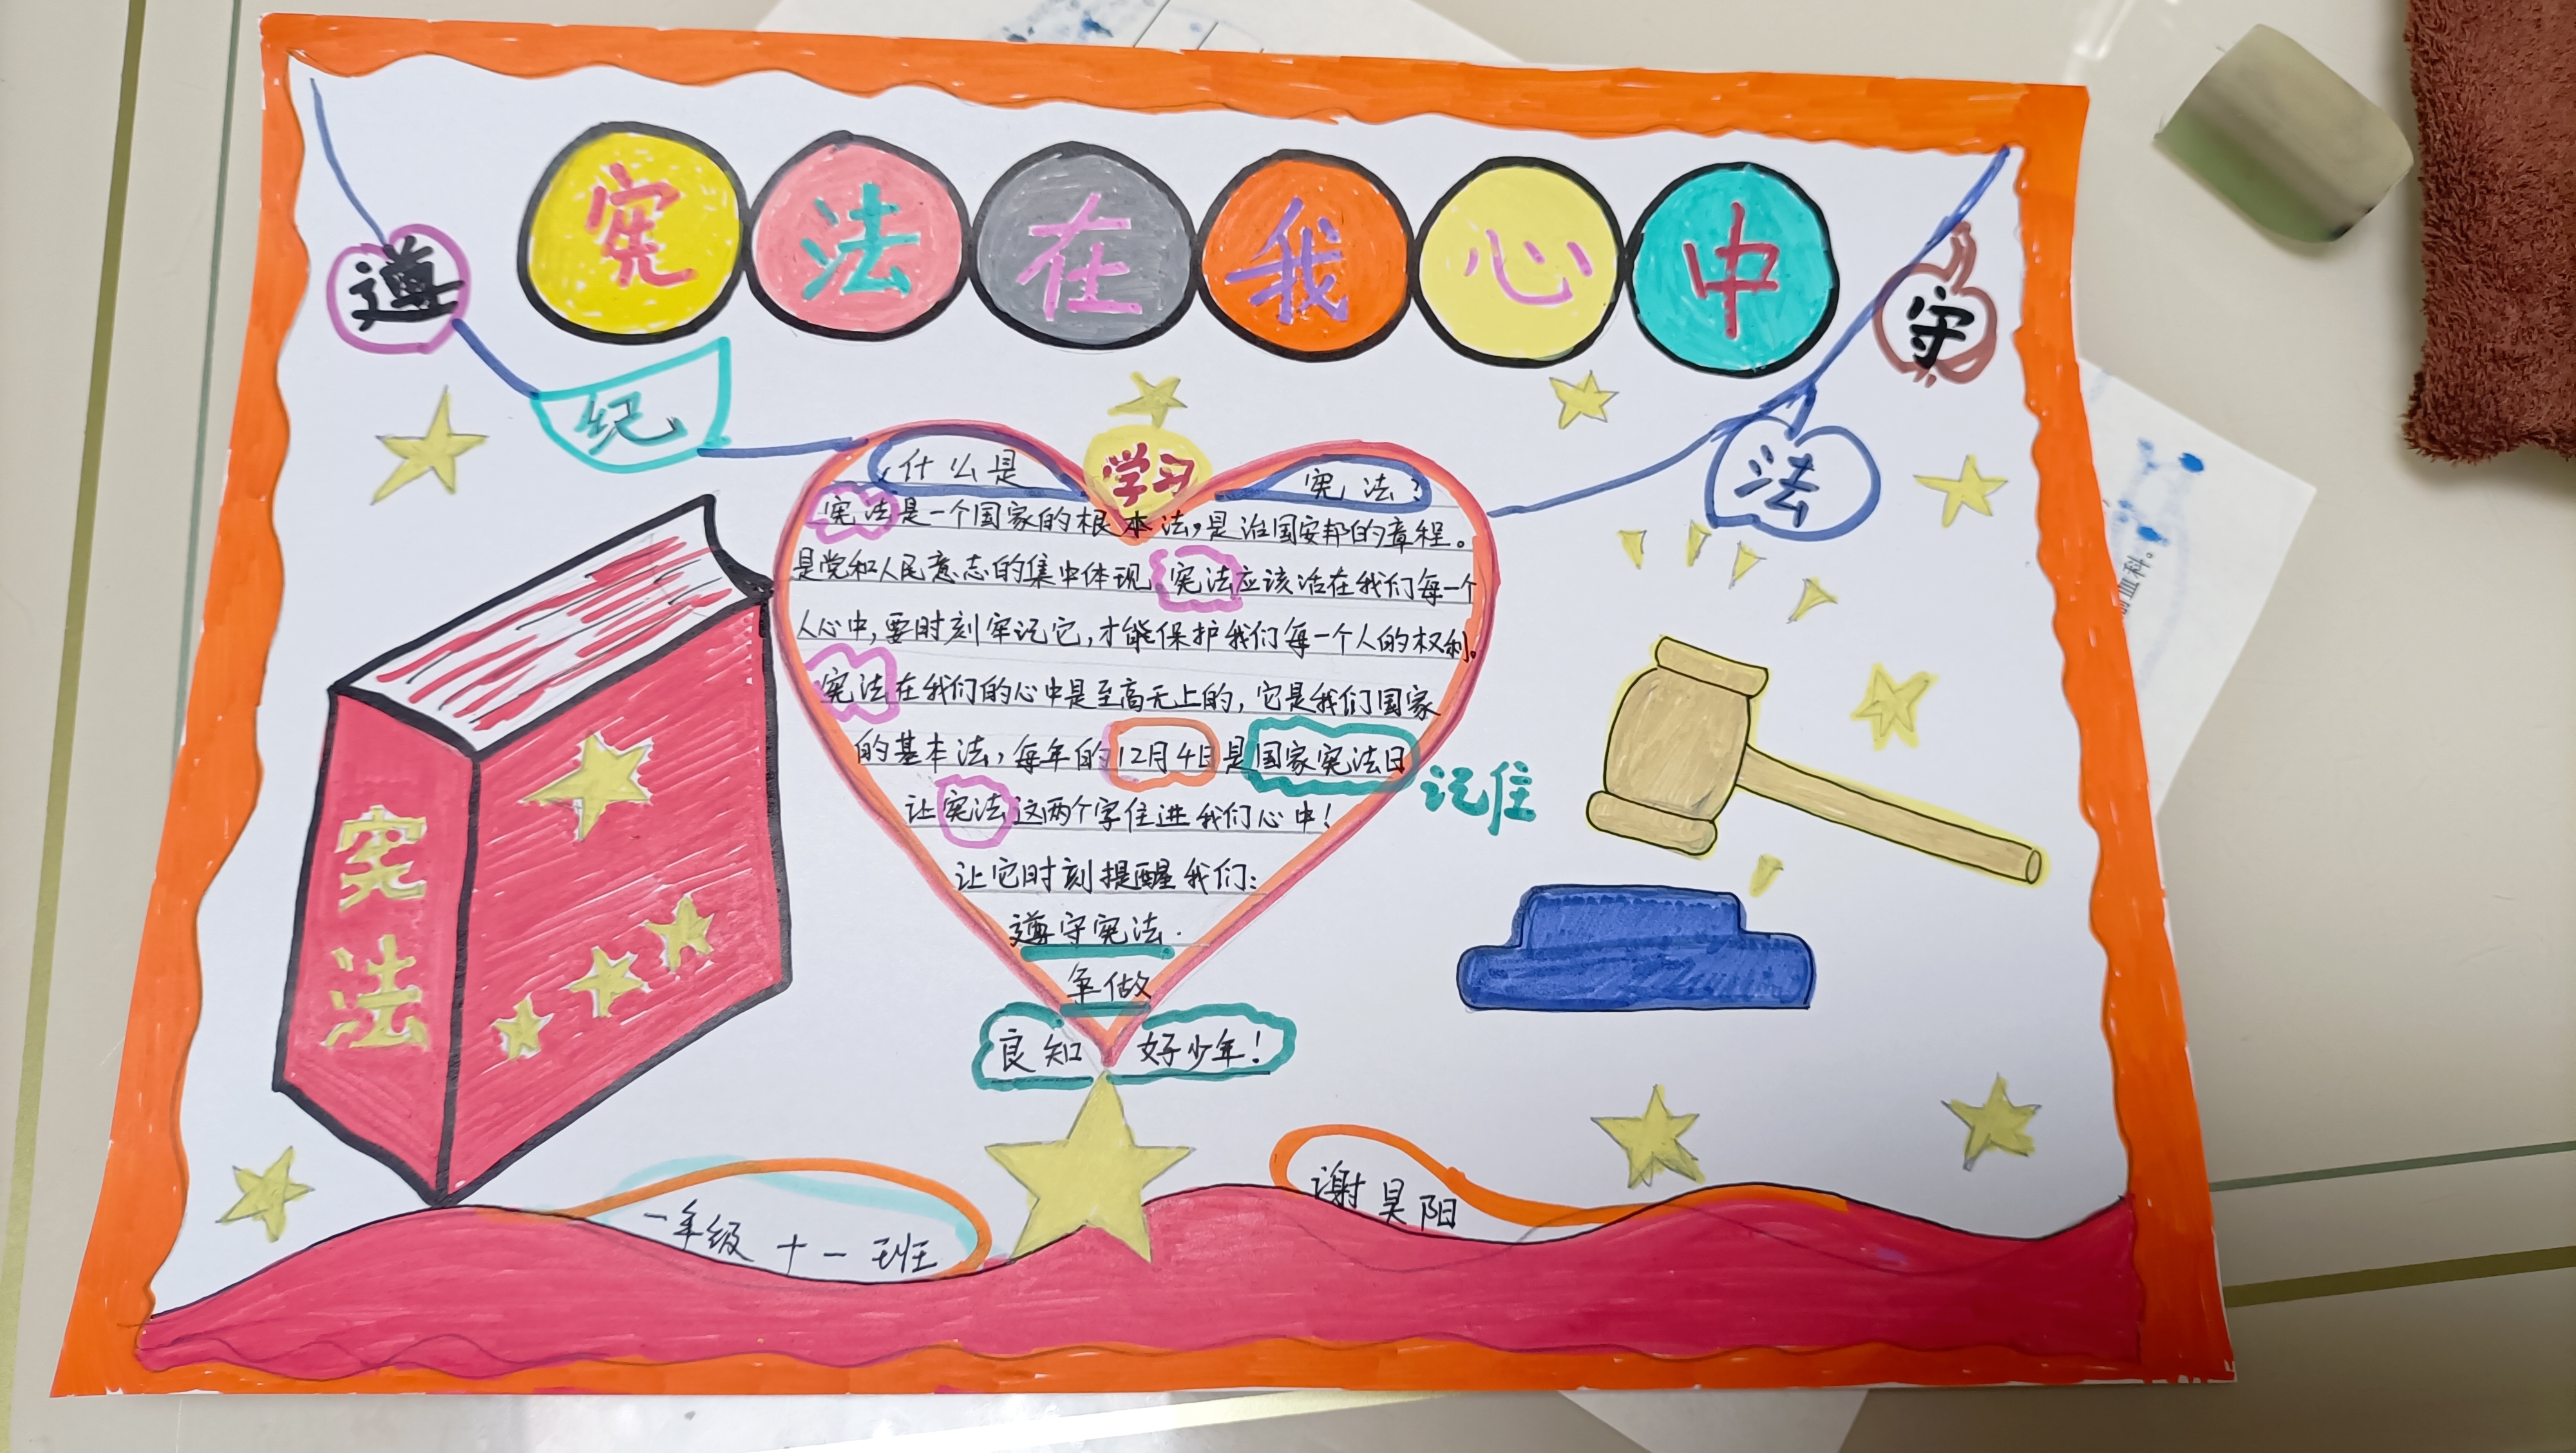 宪法在我心中
遵
纪
守
法
学习
什么是 宪法?
宪法是一个国家的根本法,是治国安邦的章程。
是党和人民意志的集中体现,宪法应该活在我们每一个
人心中,要时刻牢记它,才能保护我们每一个人的权利。
宪法在我们的心中是至高无上的,它是我们国家
的基本法,每年的12月4日是国家宪法日
记住
让宪法这两个字住进我们心中!
让它时刻提醒我们:
遵守宪法.
争做
良知 好少年!
宪法
一年级 十一班
谢昊阳